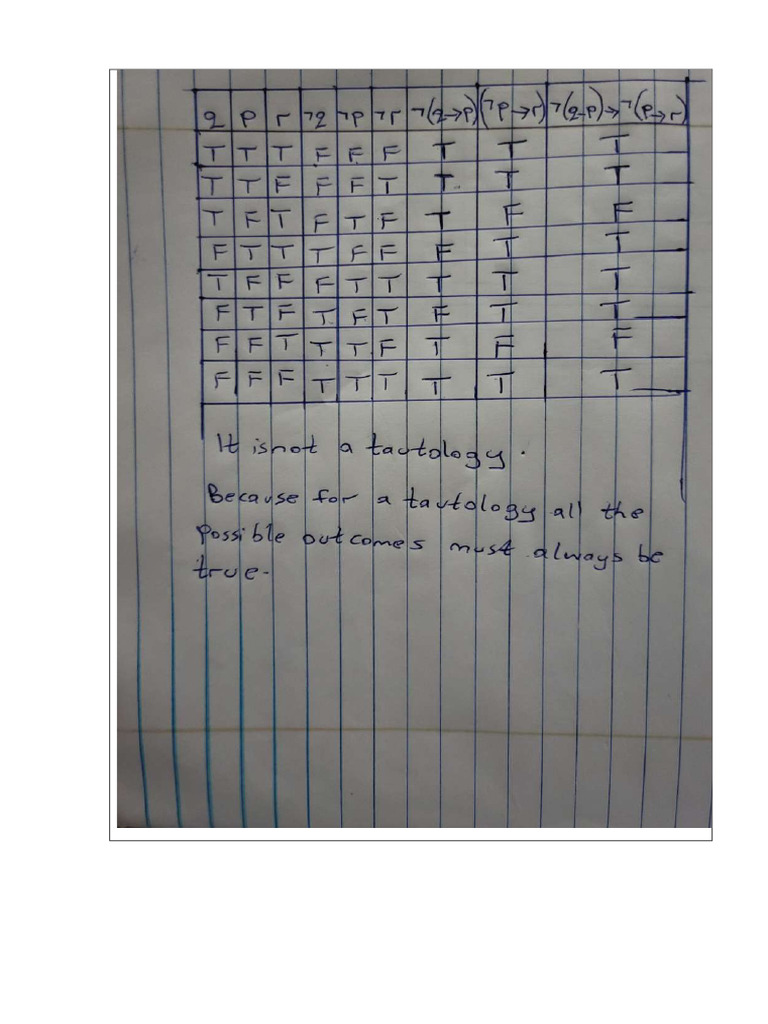 q p r ¬q ¬p ¬r ¬(q→p) (¬p→r) ¬(q→p)→¬(p→r)
T T T F F F T T T
T T F F F T T T T
T F T F T F T F F
F T T T F F F T T
T F F F T T T T T
F T F T F T F T T
F F T T T F T F F
F F F T T T T T T
It is not a tautology.
Because for a tautology all the
possible outcomes must always be
true.